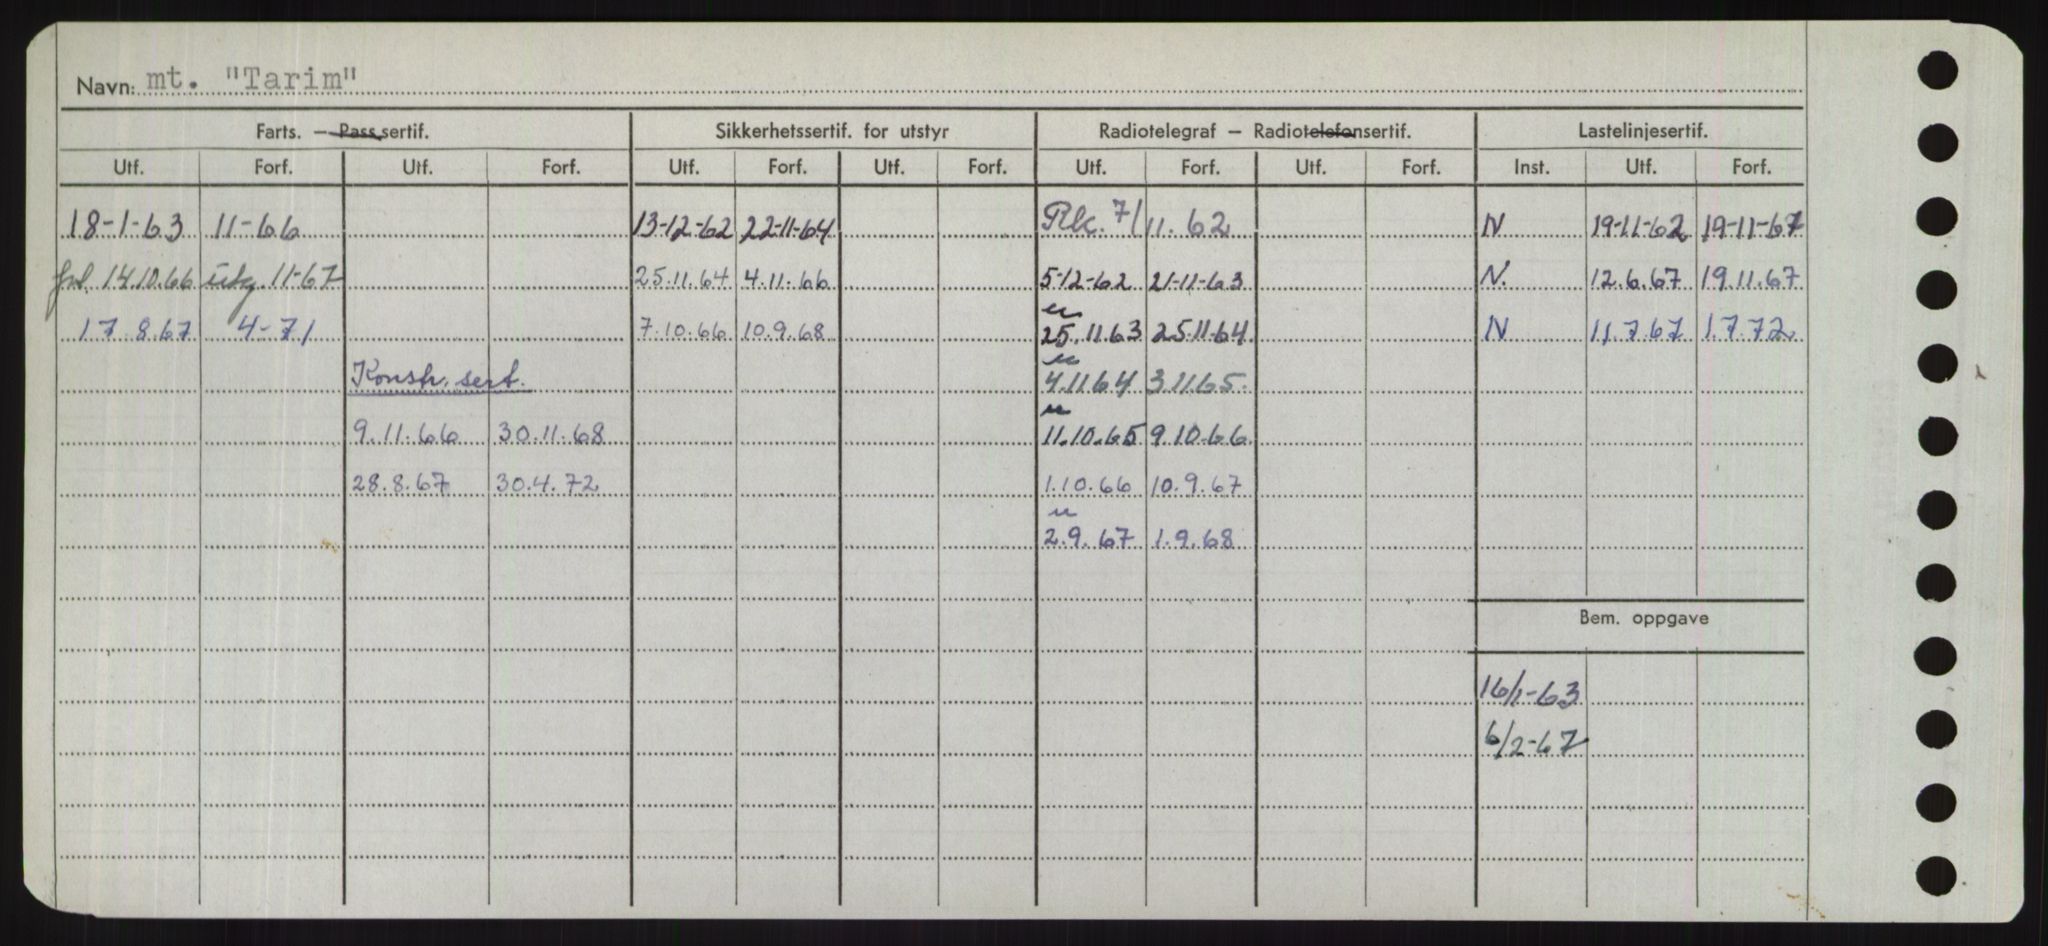 Navn: mt. "Tarim"
Farts. – Pass.sertif. Sikkerhetssertif. for utstyr Radiotelegraf – Radiotelefonsertif. Lastelinjesertif.
Utf. Forf. Utf. Forf. Utf. Forf. Utf. Forf. Utf. Forf. Utf. Forf. Inst. Utf. Forf.
18-1-63 11-66 13-12-62 22-11-64 7/11.62 N 19-11-62 19-11-67
14.10.66 utg. 11-67 25.11.64 4.11.66 5-12-62 21-11-63 N. 12.6.67 19.11.67
17.8.67 4-71 7.10.66 10.9.68 25.11.63 25.11-64 N 11.7.67 1.7.72
Konstr. sert. 4.11.64 3.11.65.
9.11.66 30.11.68 11.10.65 9.10.66
28.8.67 30.4.72 1.10.66 10.9.67
2.9.67 1.9.68
Bem. oppgave
16/1-63
6/2-67